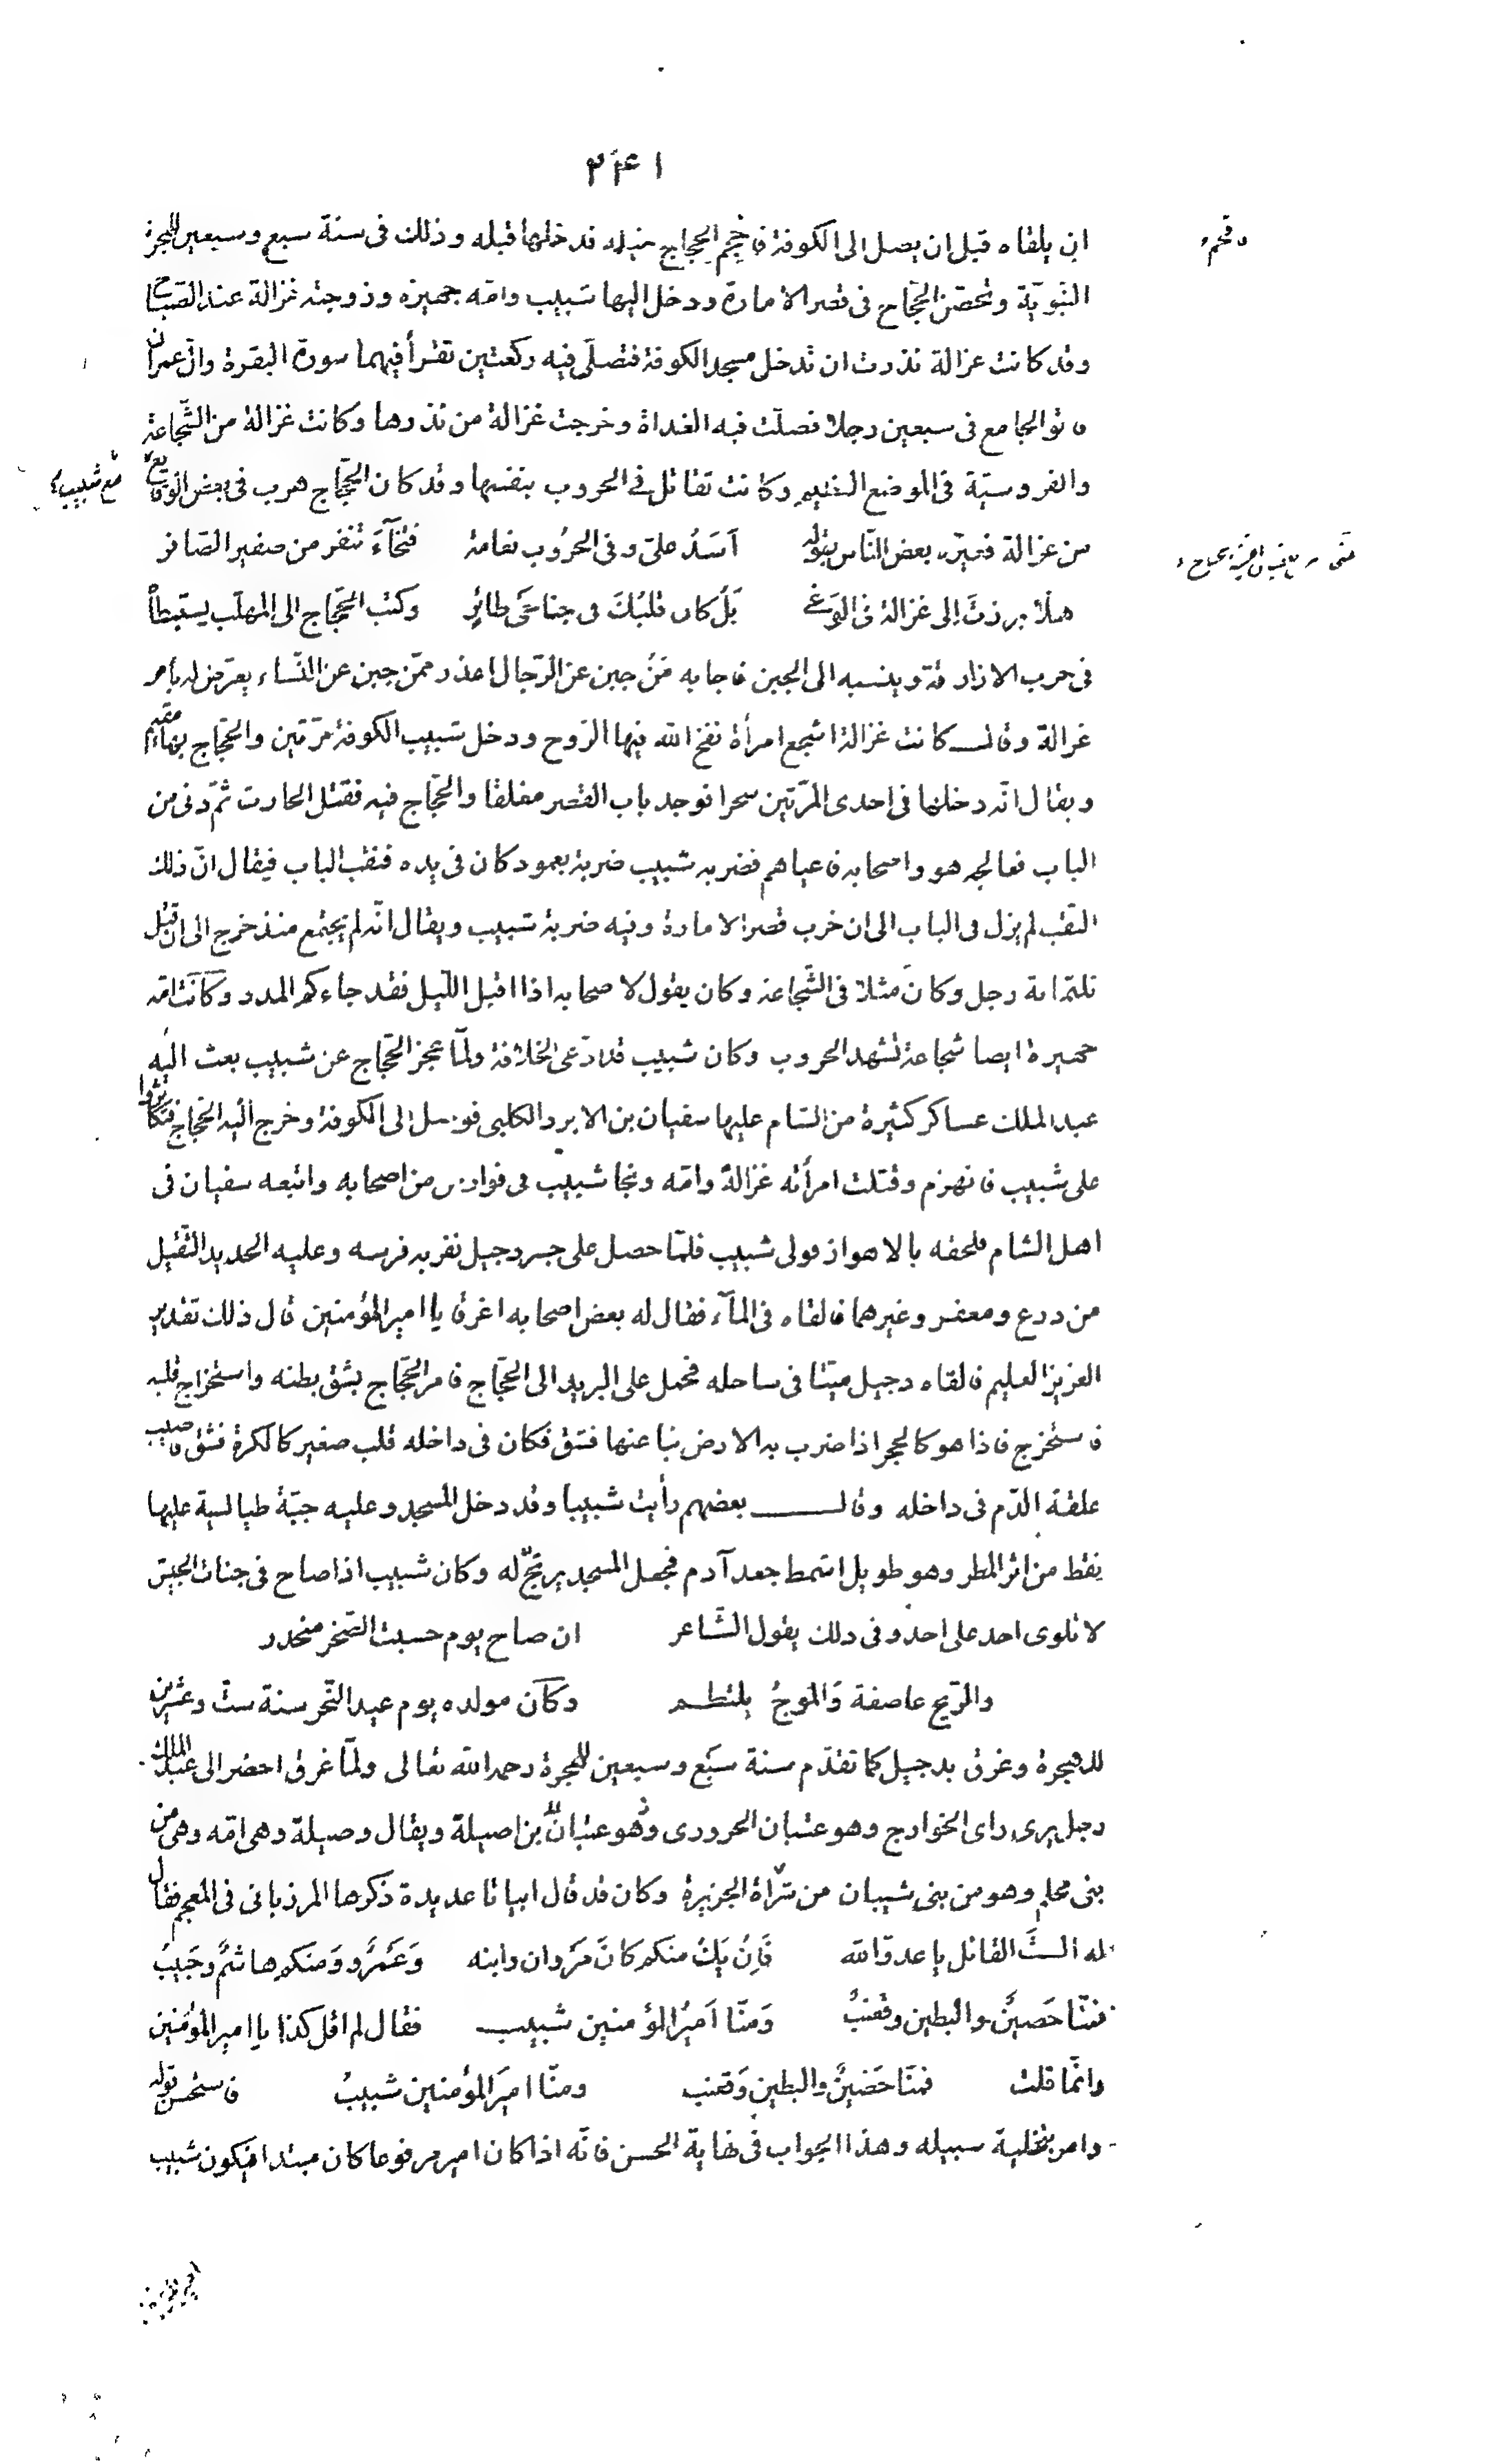 ٢٤١
ان يلقاه قبل ان يصل الى الكوفة فاقحم الحجاج خيله فدخلها قبله وذلك فى سنة سبع وسبعين للهجرة
النبويّة وتحصّن الحجّاج فى قصر الامارة ودخل اليها شبيب وامّه جهيزة وزوجته غزالة عند الصّباح
وقد كانت غزالة نذرت ان تدخل مسجد الكوفة فتصلّى فيه ركعتين تقرأ فيهما سورة البقرة وآل عمران
فاتوا الجامع فى سبعين رجلا فصلّت فيه الغداة وخرجت غزالة من نذرها وكانت غزالة من الشّجاعة
والفروسيّة فى الموضع العظيم وكانت تقاتل فى الحروب بنفسها وقد كان الحجّاج هرب فى بعض الوقايع
مع شبيب
من غزالة فعيّره بعض النّاس بقوله اَسَدٌ علىّ وفى الحرُوب نعامة فتخآءَ تنفر من صفير الصّافر
هلّا برزتَ اِلى غزالة فى الوَغى بَلْ كان قلبُكَ فى جناحَىْ طائرٍ وكتب الحجّاج الى المهلّب يستبطأ
فى حرب الازارقة وينسبه الى الجبن فاجابه مَنْ جبن عن الرّجال اعذر ممّن جبن عن النّساء يعرّض له بامر
غزالة وقال كانت غزالة اشجع امرأة نفخ الله فيها الرّوح ودخل شبيب الكوفة مرّتين والحجّاج بها مقيم
ويقال انّه دخلها فى احدى المرّتين سحرا فوجد باب القصر مغلقا والحجّاج فيه فقتل الحارث ثمّ دنى من
الباب فعالجه هو واصحابه فاعياهم فضربه شبيب ضربة بعمود كان فى يده فنقب الباب فيقال انّ ذلك
النّقب لم يزل فى الباب الى ان خرب قصر الامارة وفيه ضربة شبيب ويقال انّه لم يجتمع منذ خرج الى ان قتل
ثلثماية رجل وكان مثلا فى الشّجاعة وكان يقول لاصحابه اذا اقبل اللّيل فقد جاءكم المدد وكانت امّه
جهيزة ايضا شجاعة تشهد الحروب وكان شبيب قد ادّعى الخلافة ولمّا عجز الحجّاج عن شبيب بعث اليه
عبد الملك عساكر كثيرة من الشام عليها سفيان بن الابرد الكلبى فوصل الى الكوفة وخرج اليه الحجّاج فتكاثروا
على شبيب فانهزم وقتلت امرأته غزالة وامّه ونجا شبيب فى فوارس من اصحابه واتبعه سفيان فى
اهل الشام فلحقه بالاهواز فولى شبيب فلمّا حصل على جسر دجيل نفر به فرسه وعليه الحديد الثقيل
من درع ومغفر وغيرهما فالقاه فى المآء فقال له بعض اصحابه اغرقا يا امير المؤمنين قال ذلك تقدير
العزيز العليم فالقاه دجيل ميّتا فى ساحله فحمل على البريد الى الحجّاج فامر الحجّاج بشق بطنه واستخراج قلبه
فاستخرج فاذا هو كالحجر اذا ضرب به الارض نبا عنها فشق فكان فى داخله قلب صغير كالكرة فشق فاصيب
علقة الدّم فى داخله وقال بعضهم رأيت شبيبا وقد دخل المسجد وعليه جبّة طيالسية عليها
نقط من اثر المطر وهو طويل اشمط جعد آدم فجعل المسجد يرتجّ له وكان شبيب اذا صاح فى جنات الجيش
لا تلوى احد على احد وفى ذلك يقول الشّاعر ان صاح يوم حسبت الصّخر منحدر
والرّيح عاصفة والموجُ يلتطم وكان مولده يوم عيد النّحر سنة ستّ وعشرين
للهجرة وغرق بدجيل كما تقدّم سنة سبع وسبعين للهجرة رحمه الله تعالى ولمّا غرق احضر الى عبد الملك
رجل يرى راى الخوارج وهو عتبان الحرورى وهو عتبان بن اصيلة ويقال وصيلة وهى امّه وهى من
بنى محلم وهو من بنى شيبان من شراة الجزيرة وكان قد قال ابياتا عديدة ذكرها المرزبانى فى المعجم فقال
له الستَ القائل يا عدوّ الله فَاِنْ يَكُ منكم كانَ مَرْوان وابنه وَعَمْرٌو وَمنكم هاشمٌ وَحَبيبُ
فمنّا حَصينٌ والبطين وقعنبٌ وَمنّا اَميرُ المؤمنين شبيب فقال لم اقل كذا يا امير المؤمنين
وانّما قلت فمنّا حَصينٌ والبطين وَقعنب ومنّا اميرَ المؤمنين شبيبُ فاستحسن قوله
وامر بتخلية سبيله وهذا الجواب فى نهاية الحسن فانّه اذا كان امير مرفوعا كان مبتدا فيكون شبيب